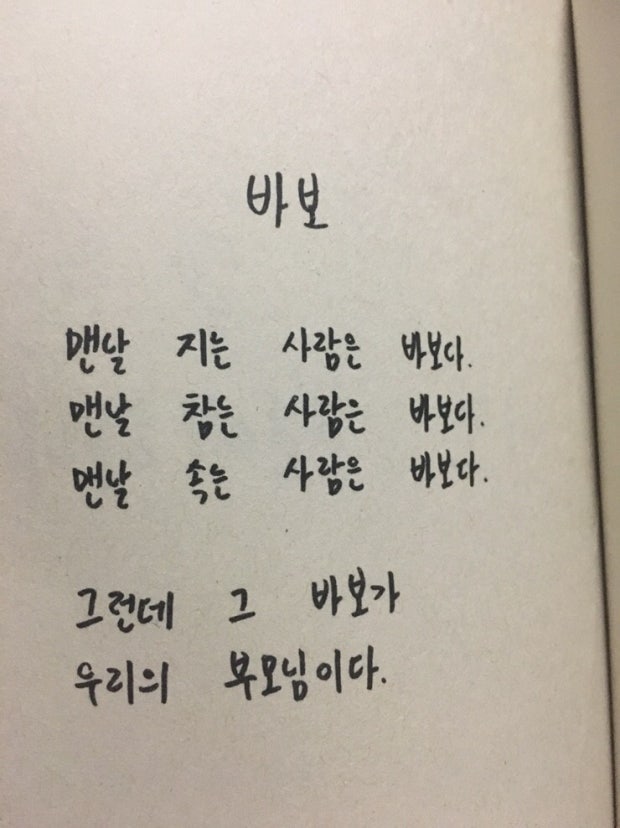 바보
맨날 지는 사람은 바보다.
맨날 참는 사람은 바보다.
맨날 속는 사람은 바보다.
그런데 그 바보가
우리의 부모님이다.